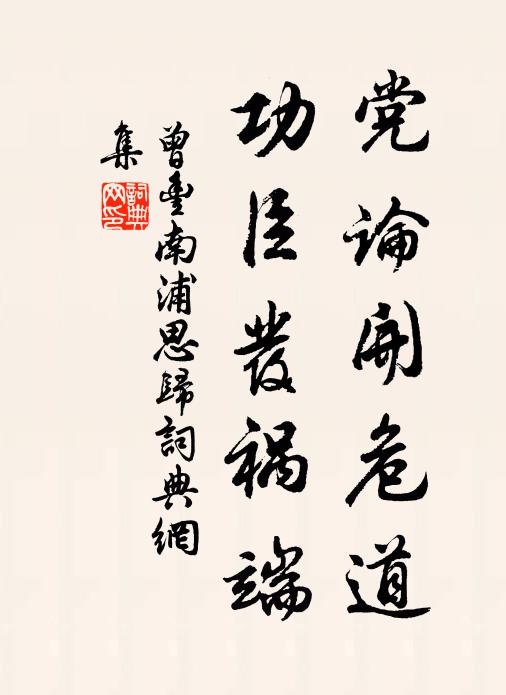 党論開危道
功臣發禍端
曾豐南浦思歸詞典網
集
詞典
网印